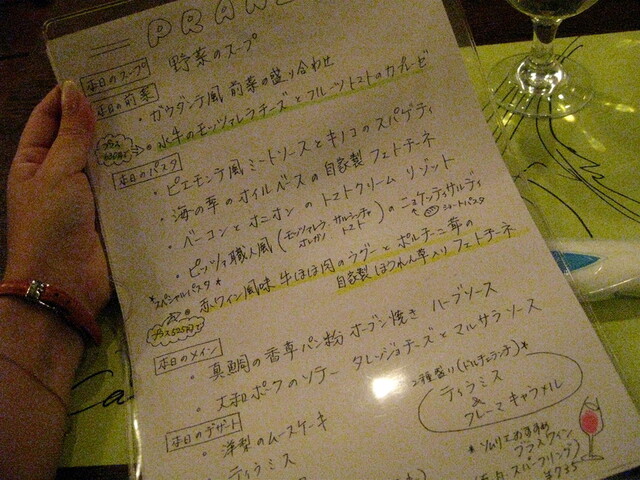 PRAN
本日のスープ
野菜のスープ
本日の前菜
・ガウダンテ風 前菜の盛り合わせ
プラス
・水牛のモッツァレラチーズとフルーツトマトのカプレーゼ
本日のパスタ
・ピエモンテ風 ミートソースとキノコのスパゲティ
・海の幸のオイルベースの自家製フェトチーネ
・ベーコンとオニオンのトマトクリームリゾット
・ピッツァ職人風(モッツァレラ・サルシッチャ
オレガノ トマト)の
ショートパスタ
*スペシャルパスタ*
・赤ワイン風味 牛ほほ肉のラグーとポルチーニ茸の
自家製ほうれん草入りフェトチーネ
プラス525円で
本日のメイン
・真鯛の香草パン粉オーブン焼き ハーブソース
・大和ポークのソテー タレッジョチーズとマルサラソース
本日のデザート
・洋梨のムースケーキ
・ティラミス
2種盛り(ドルチェランチ)*
ティラミス
&
クレーマキャラメル
*ソムリエおすすめ
グラスワイン
スパークリング)
¥735
Ca